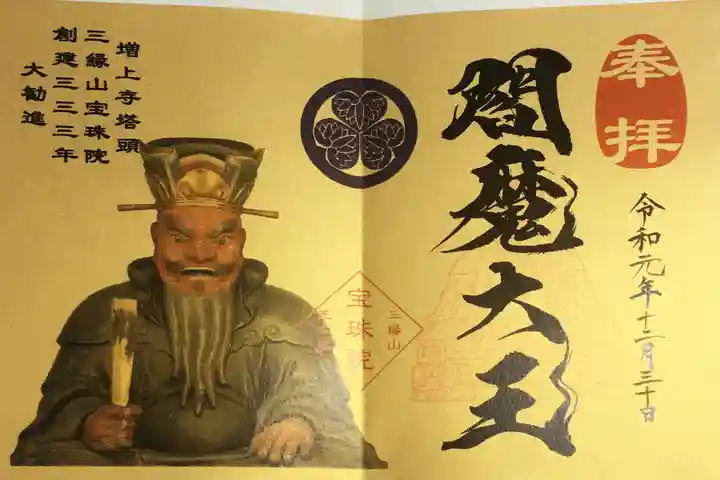 奉拝
閻魔大王
令和元年十二月三十日
増上寺塔頭
三縁山宝珠院
創建三三三年
大勧進
三縁山
宝珠院